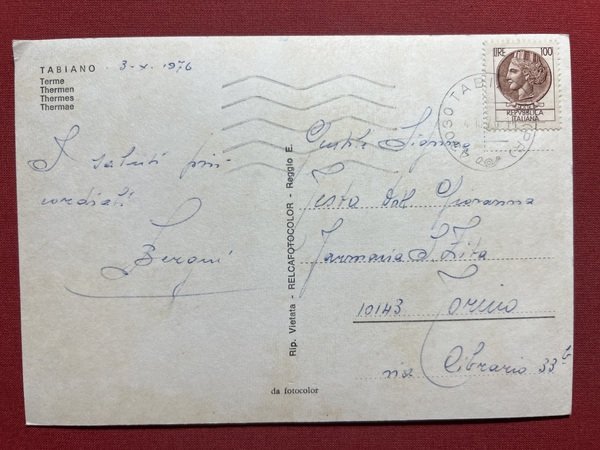 TABIANO 3-X-1976
Terme
Thermen
Thermes
Thermae
I saluti più
cordiali
Rip. Vietata - RELCAFOTOCOLOR - Reggio E.
da fotocolor
LIRE 100
REPVBBLICA
ITALIANA
Gentile Signora
Testa Giovanna
Farmacia S. Zita
10143 Torino
via Cibrario 33